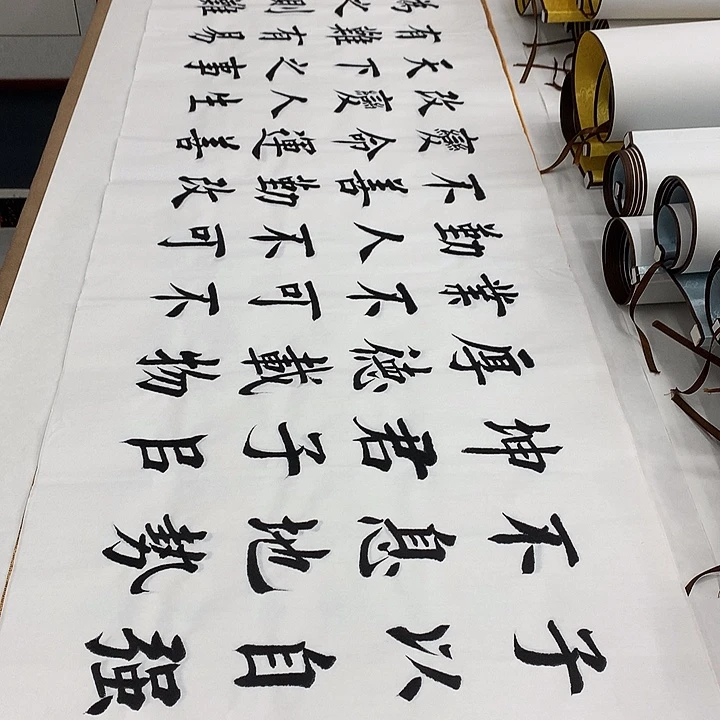 子以自强
不息地勢
坤君子
厚德載物
業不可不
勤人不可
不善勤改
變命運善
改變人生
天下之事
有難有易
為之則難